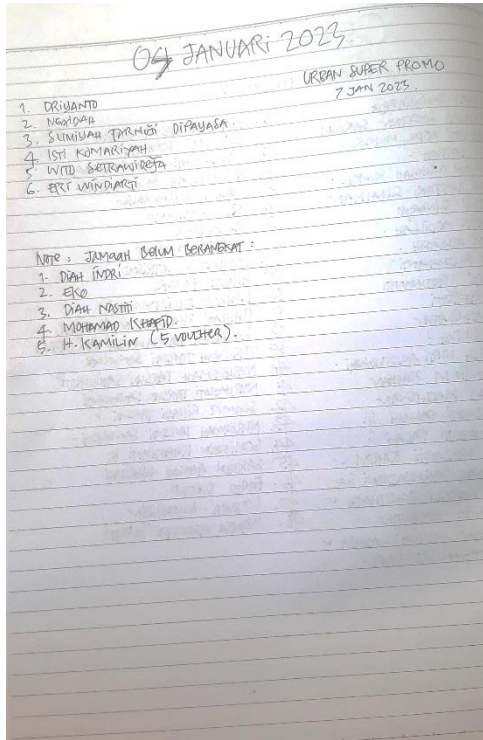 04 JANUARI 2023
URBAN SUPER PROMO
7 JAN 2023.
1. DRIYANTO
2. NGAIDAH
3. SUMIYAH TARMUJI DIPAYASA
4. ISTI KOMARIYAH
5. WITO SETRAWIREJA
6. ERI WINDIARTI
NOTE : JAMAAH BELUM BERANGKAT :
1. DIAH INDRI
2. EKO
3. DIAH NASTITI
4. MOHAMAD KHAFID.
5. H. KAMILIN (5 VOUCHER).